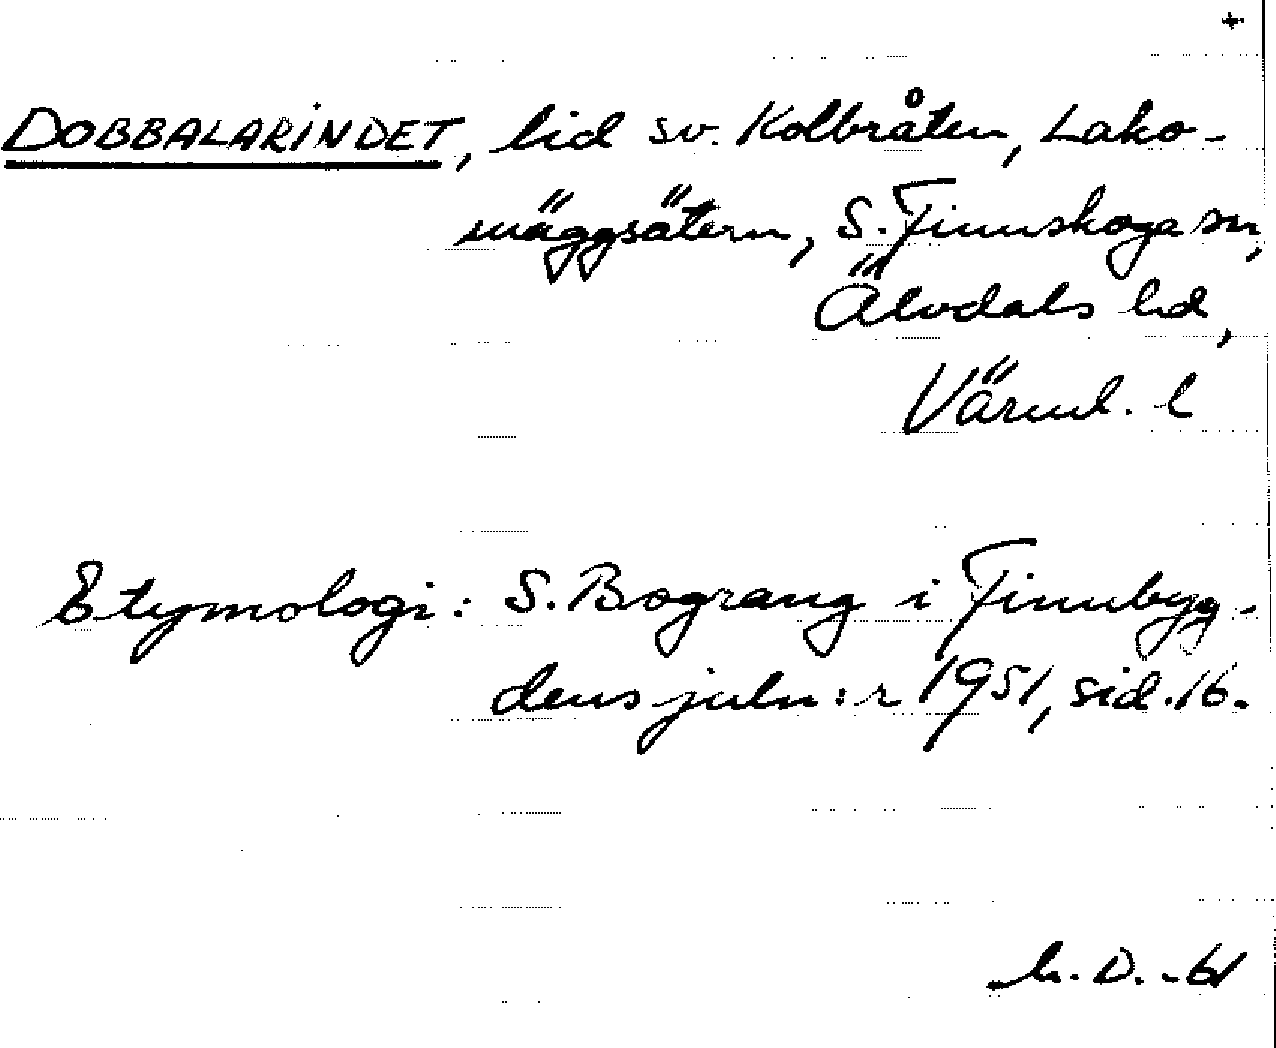 +
DOBBALARINDET, lid sv. Kolbråten, Laho-
mäggsätern, S. Finnskoga sn,
Älvdals hd,
Värml. l
Etymologi: S. Bograng i Finnbyg-
dens juln:r 1951, sid. 16.
h. D. -61